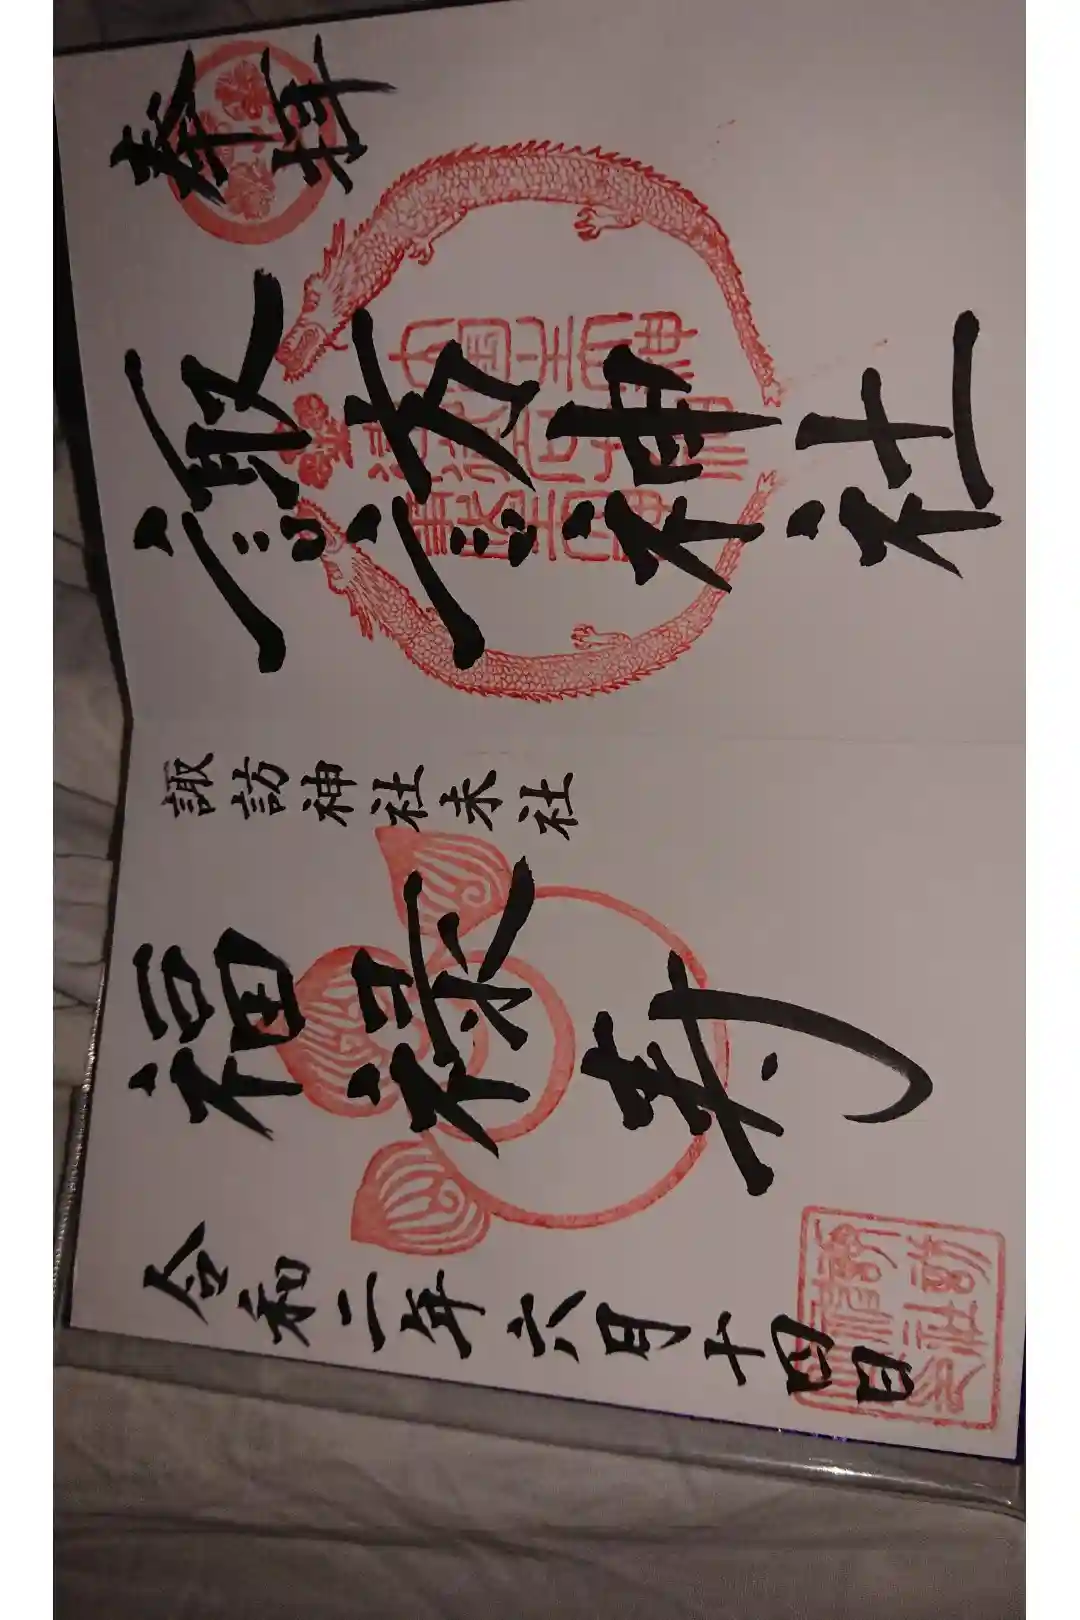 奉拝
諏訪神社
諏訪神社末社
福禄寿
令和二年六月十四日